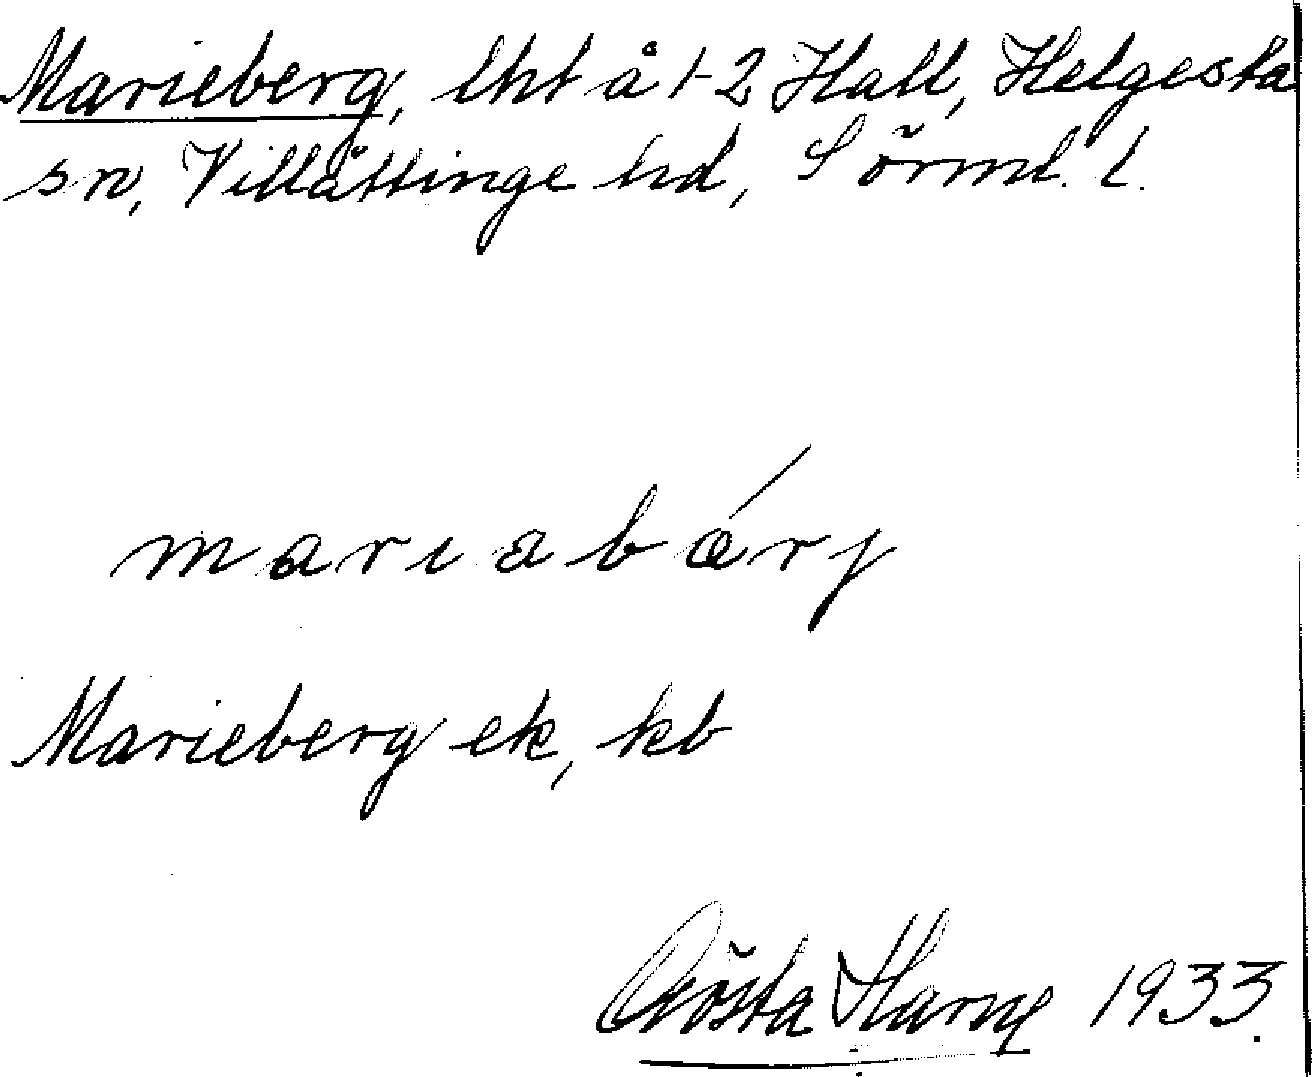 Marieberg, lht å 1-2 Hall, Helgesta
sn, Villåttinge hd, Sörml. l.
mariabǽrj
Marieberg ek, kb
Gösta Harne 1933.